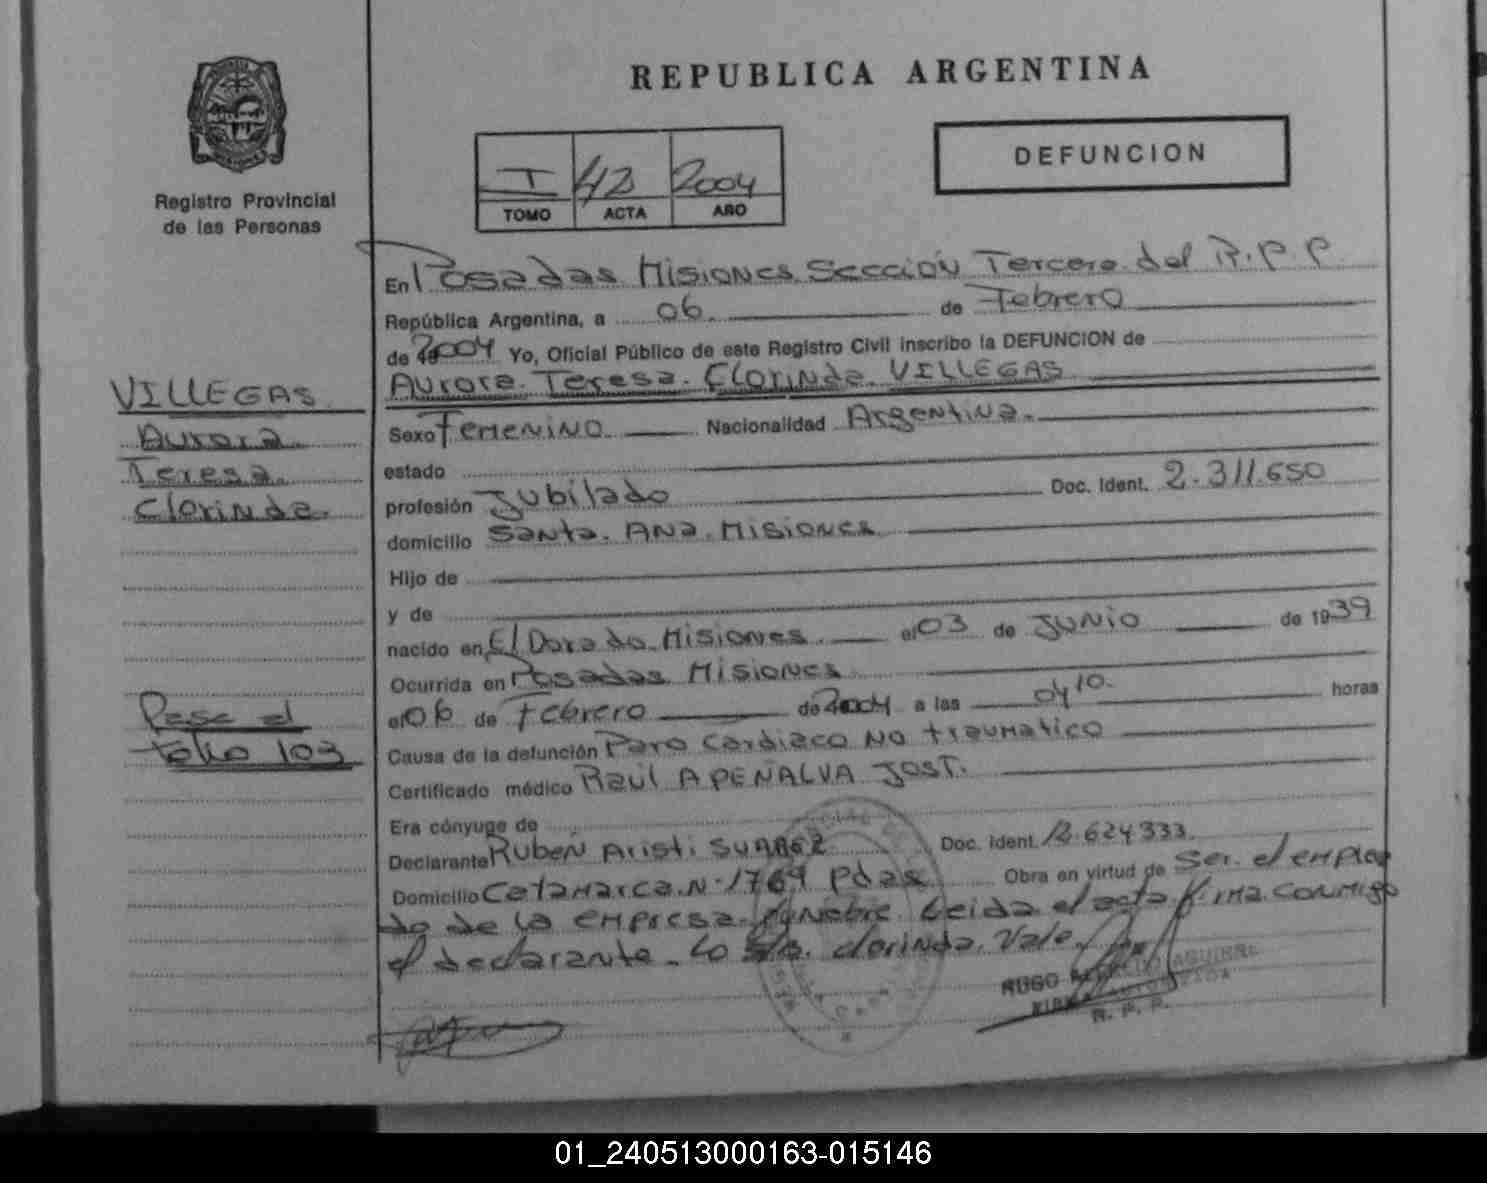 REPUBLICA ARGENTINA
DEFUNCION
I 42 2004
TOMO ACTA AÑO
Registro Provincial
de las Personas
VILLEGAS
Aurora
Teresa
Clorinda.
Pasa al
folio 103
En Posadas Misiones Sección Tercera del R.P.P.
República Argentina, a 06 de Febrero
de 2004 Yo, Oficial Público de este Registro Civil inscribo la DEFUNCION de
Aurora. Teresa. Clorinda. VILLEGAS
Sexo Femenino Nacionalidad Argentina.
estado
profesión Jubilado Doc. Ident. 2.311.650
domicilio Santa. Ana. Misiones
Hijo de
y de
nacido en El Dorado. Misiones. el 03 de Junio de 1939
Ocurrida en Posadas Misiones
el 06 de Febrero de 2004 a las 04 10. horas
Causa de la defunción Paro Cardiaco No traumatico
Certificado médico Raúl A PEÑALVA JOST.
Era cónyuge de
Declarante Rubén Aristi SUAREZ Doc. Ident. 12.624.333.
Domicilio Catamarca. N-1769 Pdas Obra en virtud de Ser. el emplea
do de la empresa. funebre. Leida el acta firma. conmigo
el declarante. Lo Clorinda. Vale.
HUGO AGUIRRE
R. P. P.
01_240513000163-015146